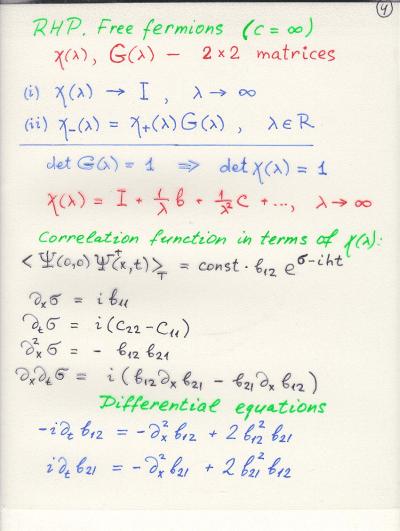 4
RHP. Free fermions (c = ∞)
χ(λ), G(λ) – 2×2 matrices
(i) χ(λ) → I , λ → ∞
(ii) χ₋(λ) = χ₊(λ)G(λ) , λ∈R
det G(λ) = 1 ⇒ det χ(λ) = 1
χ(λ) = I + 1/λ b + 1/λ² c + ..., λ → ∞
Correlation function in terms of χ(λ):
⟨Ψ(0,0) Ψ⁺(x,t)⟩_T = const · b₁₂ e^{σ-iht}
∂ₓσ = i b₁₁
∂ₜσ = i(c₂₂ – c₁₁)
∂ₓ²σ = – b₁₂ b₂₁
∂ₓ∂ₜσ = i(b₁₂∂ₓb₂₁ – b₂₁∂ₓb₁₂)
Differential equations
-i∂ₜb₁₂ = -∂ₓ²b₁₂ + 2b₁₂²b₂₁
i∂ₜb₂₁ = -∂ₓ²b₂₁ + 2b₂₁²b₁₂